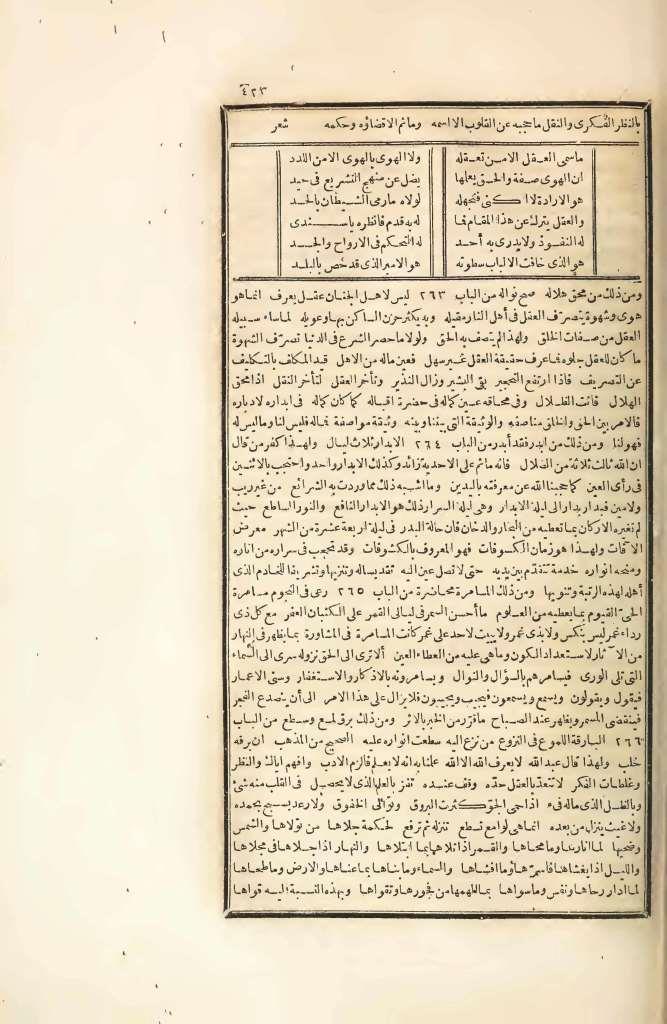 ٤٢٣
بالنظر الفكرى والنقل ما حجبه عن القلوب الا اسمه وما ثم الا قضاؤه وحكمه شعر
ما سمى العقل الا من تعقله ولا الهوى بالهوى الا من اللدد
ان الهوى صفة والحق يعلمها يضل عن منهج التشريع فى حيد
هو الارادة لا أكنى فتجهله لولاه ما رمى الشيطان بالحسد
والعقل يترك عن هذا المقام فما له به قدم فانظره يا سندى
له النفوذ ولا يدرى به أحد له التحكم فى الارواح والجسد
هو الذى خافت الالباب سطوته هو الامير الذى قد خص بالبلد
ومن ذلك من محق هلاله صح نواله من الباب ٢٦٣ ليس لاهل الجنان عقل يعرف انما هو
هوى وشهوة يتصرف العقل فى أهل النار مقيله وبه يكثر حزن الساكن بها وعويله لما ساء سبيله
العقل من صفات الخلق ولهذا لم يتصف به الحق ولولا ما حصر الشرع فى الدنيا تصرف الشهوة
ما كان للعقل جلوه فما عرف حقيقة العقل غير سهل فعين ماله من الاهل قيد المكلف بالتكليف
عن التصريف فاذا ارتفع التحجير بقى البشير وزال النذير وتأخر العقل لتأخر النقل اذا محق
الهلال فأنت الظلال وفى محاقه عين كماله فى حضرة اقباله كما كان كماله فى ابداره لادباره
فالامر بين الحق والخلق مناصفه والوثيقة التى بيننا وبينه وثيقة مواصفة فماله فليس لنا وما ليس له
فهو لنا ومن ذلك من ابدر فقد أبدر من الباب ٢٦٤ الابدار ثلاث ليال ولهذا كفر من قال
ان الله ثالث ثلاثة من الضلال فانه ما ثم على الاحدية زائد وكذلك الابدار واحد واحتجب بالاثنين
فى رأى العين كما حجبنا الله عن معرفته باليدين وما أشبه ذلك مما وردت به الشرائع من غير ريب
ولا مين فبدار بدار الى ليلة الابدار وهى ليلة السرار ذلك هو الابدار النافع والنور الساطع حيث
لم تغيره الاركان بما تعطيه من البخار والدخان فان حالة البدر فى ليلة اربعة عشرة من الشهر معرض
الآفات ولهذا هو زمان الكسوفات فهو المعروف بالكشوفات وقد تحجب فى سراره من اناره
ومنحه انواره خدمة تتقدم بين يديه حتى لا تصل عين اليه تقديسا له وتنزيها وتشريفا للخادم الذى
أهله لهذه الرتبة وتنويها ومن ذلك المسامرة محاضرة من الباب ٢٦٥ رعى فى النجوم مسامرة
الحى القيوم بما يعطيه من العلوم ما أحسن السمر فى ليالى القمر على الكثبان العفر مع كل ذى
رداء غمر ليس بنكس ولا بذى غمر ولا يبيت لاحد على غمر كانت المسامرة فى المشاورة بما يظهر فى النهار
من الآثار لاستعداد الكون وما هى عليه من العطاء العين ألا ترى الى الحق نزوله سرى الى السماء
التى تلى الورى فيسامرهم بالسؤال والنوال ويسامرونه بالاذكار والاستغفار وسنى الاعمار
فيقول ويقولون ويسمع ويسمعون فيجيب ويجيبون فلا يزال على هذا الامر الى أن ينصدع الفجر
فينقضى المسمر ويظهر عند الصباح ما قرر من الخبر بالاثر ومن ذلك برق لمع وسطع من الباب
٢٦٦ البارقة اللموع فى النزوع من نزع اليه سطعت انواره عليه الصحيح من المذهب ان برقه
خلب ولهذا قال عبد الله لا يعرف الله الا الله علمنا به انه لا يعلم فالزم الادب وافهم اياك والنظر
وغلطات الفكر لا تتعد بالعقل حده وقف عنده تفز بالعلم الذى لا يحصل فى القلب منه شئ
وبالظل الذى ماله فىء اذا حى الجو كثرت البروق وتوالى الخفوق ولا رعد يسبح بحمده
ولا غيث ينزل من بعده انما هى لوامع تسطع تنزله ثم ترفع لحكمة جلاها من تولاها والشمس
وضحيها لما أنارها وما محاها والقمر اذا تلاها بما ابتلاها والنهار اذا جلاها فى مجلاها
والليل اذا يغشاها فأسرها وما أفشاها والسماء وما بناها بما عناها والارض وما طحاها
لما ادار رحاها ونفس وما سواها بما الهمها من فجورها وتقواها وبهذه النسبة اليه قواها